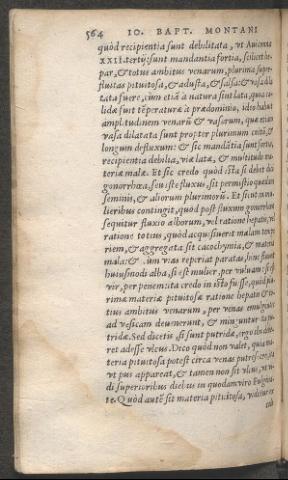 564 IO. BAPT. MONTANI
quòd recipientia sunt debilitata, ut Auicenna
XXII. tertij: sunt mandantia fortia, scilicet he-
par, & totus ambitus venarum, plurima super-
fluitas pituitosa, & adusta, & salsa: & vasa dila
tata fuere, cùm etiã à natura sint lata, quia ca-
lidæ sunt tẽperaturæ ac prædominio, ideo habet
amplitudinem venarũ & vasorum, quæ etiam
vasa dilatata sunt propter plurimum coitũ, &
longum defluxum: & sic mandãtia sunt fortia,
recipientia debilia, viæ latæ, & multitudo ma-
teriæ malæ. Et sic credo quòd ista sit debet dici
gonorrhœa, seu iste fluxus, sit permistio quædam
seminis, & aliorum plurimorũ. Et sicut in mu-
lieribus contingit, quòd post fluxum gonorrhœæ
sequitur fluxio alborum, vel ratione hepatis, vel
ratione totius, quòd acquisiuerat malam tempe-
riem, & aggregata sit cacochymia, & materia
mala: & cùm vias reperiat paratas, hinc fluunt
huiusmodi alba, si est mulier, per vuluam: si est
vir, per penem. ita credo in isto fuisse, quòd plu-
rima materiæ pituitosæ ratione hepatis & to-
tius ambitus venarum, per venas emulgentes
ad vesicam deuenerunt, & minguntur ita pu-
tridæ. Sed dicetis, si sunt putridæ, ergo ibi debe-
ret adesse vlcus. Dico quòd non valet, quia ma-
teria pituitosa potest circa venas putrescere, ita
vt pus appareat, & tamen non sit vlcus, vt vi-
di superioribus diebus in quodam viro Fulgina-
te. Quòd autẽ sit materia pituitosa, videtur ex